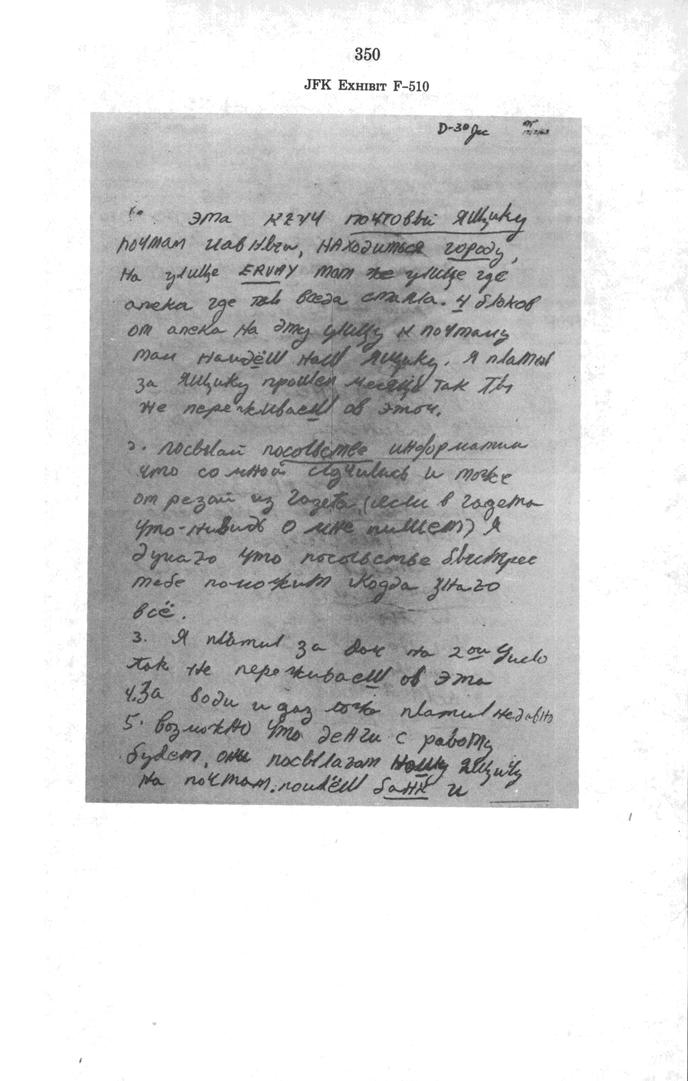 350
JFK EXHIBIT F-510
D-30
1. эта почтовый ящику
почтам находиться городу,
На улице ERVAY там же улице где
апека где всегда стаяла. 4 блоков
от апека на эту улицу к почтаму
там найдёш наш ящику. я платил
за ящику прошел месяць так ты
не переживаеш об
2. посылай посольстве информатия
что со мной случилась и тоже
отрезай из газета, (если в газета
что-нибудь о мне пишет) я
думаю что посольстве быстрее
тебе поможит когда знаго
всё.
3. Я платил за дом на 2ои
так не переживаеш об эта
4. За води и газ тоже платил недавно
5. возможно что денги с работу
будет, они посылагат нашу ящику
на почтам. поидёш банк и